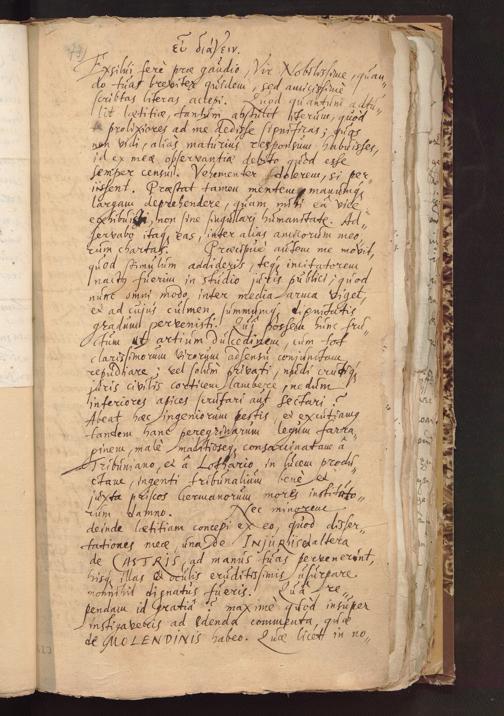 εὖ διάγειν.
Exsilui ferè præ gaudio, Vir Nobilissime, quan-
do tuas breviter quidem, sed amicissimè
scriptas literas accepi. Quod quantum attu-
lit lætitiæ, tantum abstulit iterum, quod
prolixiores ad me dedisse significas; quas
non vidi, alias maturius responsum habuisses,
id ex meæ observantiæ debito quod esse
semper censui. Vehementer dolerem, si per-
iissent. Præstat tamen mentem manumq;
largam deprehendere, quam mihi eâ vice
exhibuisti, non sine singulari humanitate. Ad-
servabo itaq; eas, inter alias amicorum meo-
rum chartas. Præcipuè autem me movit,
quod stimulum addideris, teq; incitatorem
nactus fuerim in studio juris publici; quod
nunc omni modo, inter media arma viget,
et ad cujus culmen summumq; dignitatis
gradum pervenisti. Quî possem hunc fru-
ctum et artium dulcedinem, cum tot
clarissimorum virorum adsensu conjunctam
repudiare; vel solum privati, nudi crudiq;
juris civilis corticem lambere, nedum
inferiores apices scrutari aut sectari?
Abeat hæc ingeniorum pestis, et excutiamus
tandem hanc peregrinarum legum farra-
ginem, malè malitioseq; consarcinatam â
Triboniano, et â Lothario in lucem produ-
ctam, ingenti tribunalium bene et
juxta priscos Germanorum mores instituto-
rum damno. Nec minorem
deinde lætitiam concepi ex eo, quod disser-
tationes meæ una de INJURIIS altera
de CASTRIS, ad manus tuas pervenerint,
bisq; illas et oculis eruditissimis usurpare
nonnihil dignatus fueris. Quâ re-
pendam id gratiâ? maximè quod insuper
instigaveris ad edenda commenta, quæ
de MOLENDINIS habeo. Quæ licet in no-